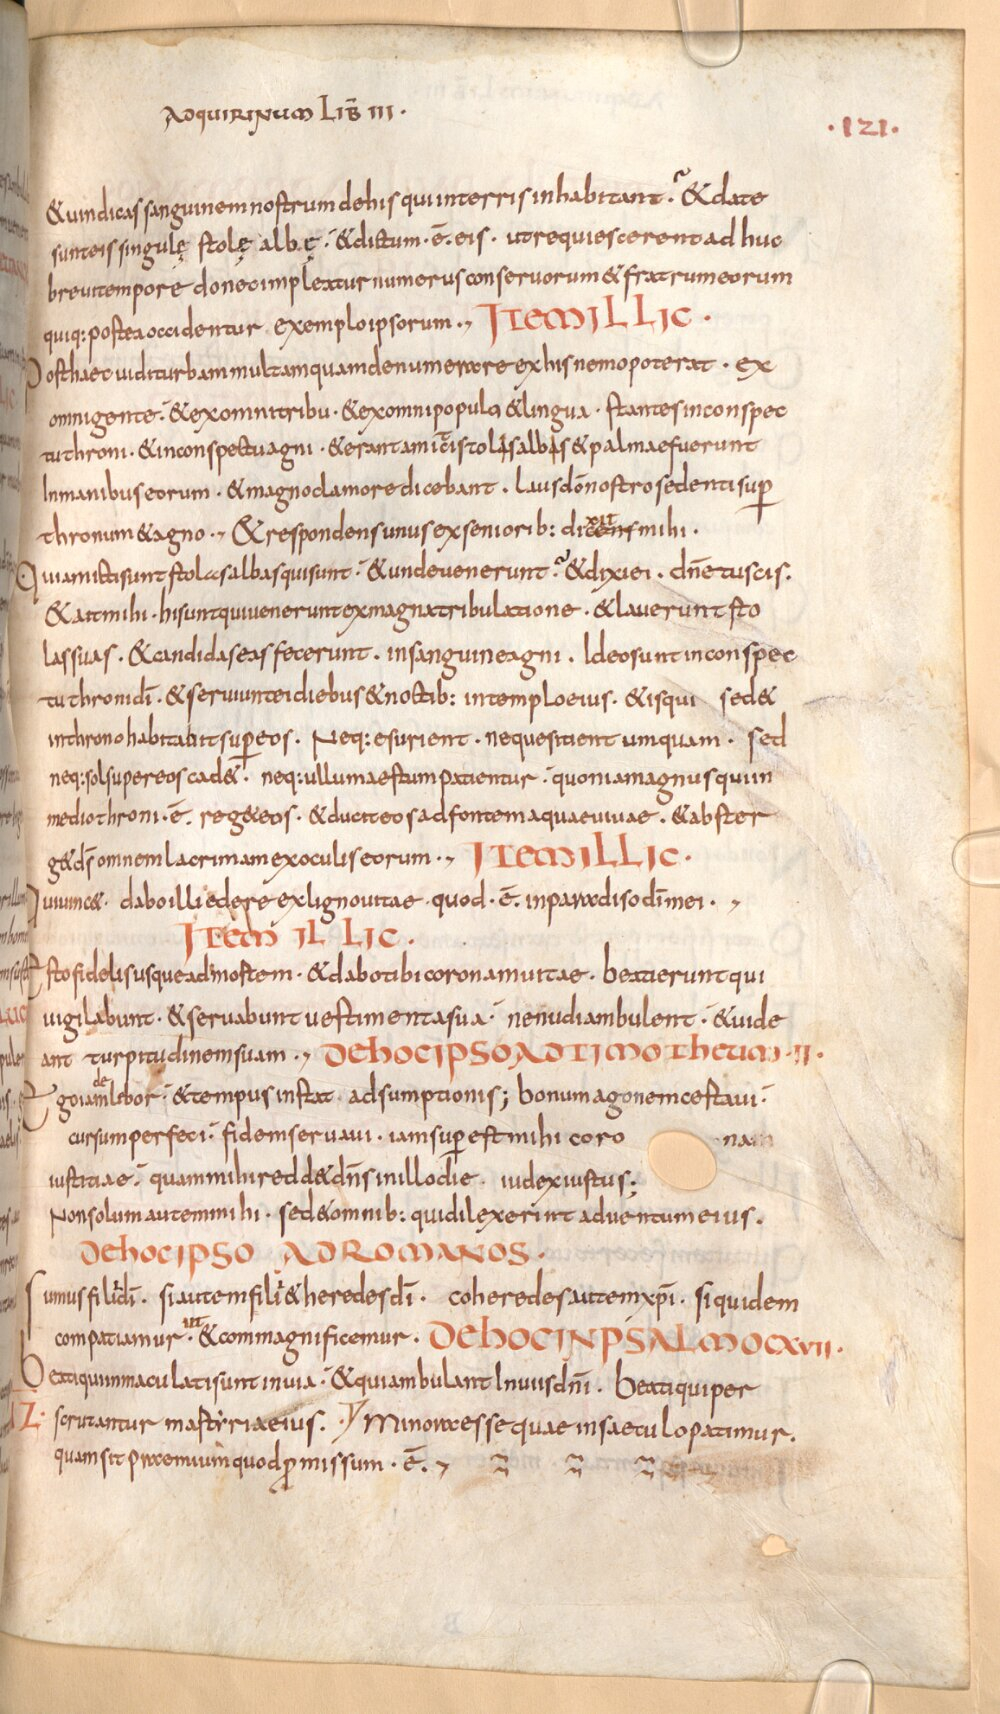 ADQUIRINUM LIB̄ III ·
· 121 ·
& uindicas sanguinem nostrum de his qui in terris inhabitant · & date
sunt eis singulę stolę albę · & dictum · ē · eis · ut requiescerent ad huc
breui tempore donec impleatur numerus conseruorum & fratrum eorum
quiq: postea occidentur exemplo ipsorum ·, ITEM ILLIC ·
Post haec uidi turbam multam quam denumerare ex his nemo poterat · ex
omni gente · & ex omni tribu · & ex omni populo & lingua · stantes in conspec
tu throni · & in conspectu agni · & erant amicti stolis albis & palmae fuerunt
In manibus eorum · & magno clamore dicebant · laus dō nostro sedenti sup̄
thronum & agno ·, & respondens unus ex seniorib: dixit mihi ·
Qui amicti sunt stolas albas qui sunt · & unde uenerunt · & dixi ei · dn̄e tu scis ·
& ait mihi · hi sunt qui uenerunt ex magna tribulatione · & lauerunt sto
las suas · & candidas eas fecerunt · in sanguine agni · Ideo sunt in conspec
tu throni dī · & seruiunt ei diebus & noctib: in templo eius · & is qui sed&
in throno habitabit sup̄ eos · Neq: esurient · neque sitient umquam · sed
neq: sol super eos cad& · neq: ullum aestum patientur · quoniam agnus qui in
medio throni · ē · reg& eos · & ducit eos ad fontem aquae uiuae · & abster
g& ds̄ omnem lacrimam ex oculis eorum ·, ITEM ILLIC ·
uiuinc& dabo illi edere ex ligno uitae quod · ē · in paradiso dī mei · ,
ITEM ILLIC ·
Esto fidelis usque ad mortem · & dabo tibi coronam uitae · beati erunt qui
uigilabunt · & seruabunt uestimenta sua · ne nudi ambulent · & uide
ant turpitudinem suam ·, DE HOC IPSO AD TIMOTHEUM · II ·
Ego iam delibor · & tempus instat adsumptionis; bonum agonem certaui ·
cursum perfeci · fidem seruaui · iam superest mihi coro nam
iustitiae · quam mihi redd& dn̄s in illo die · iudex iustus;
Non solum autem mihi · sed & omnib: qui dilexerint aduentum eius ·
DE HOC IPSO AD ROMANOS ·
Sumus filii dī · si autem filii & heredes dī · coheredes autem xp̄i · siquidem
compatiamur · ut & commagnificemur · DE HOC IN PSALMO CXVII ·
Beati qui inmaculati sunt in uia · & qui ambulant In uiis dn̄i · Beati qui per
scrutantur martyria eius · Minora esse quae in saeculo patimur ·
quam sit praemium quod p̄missum · ē · ,